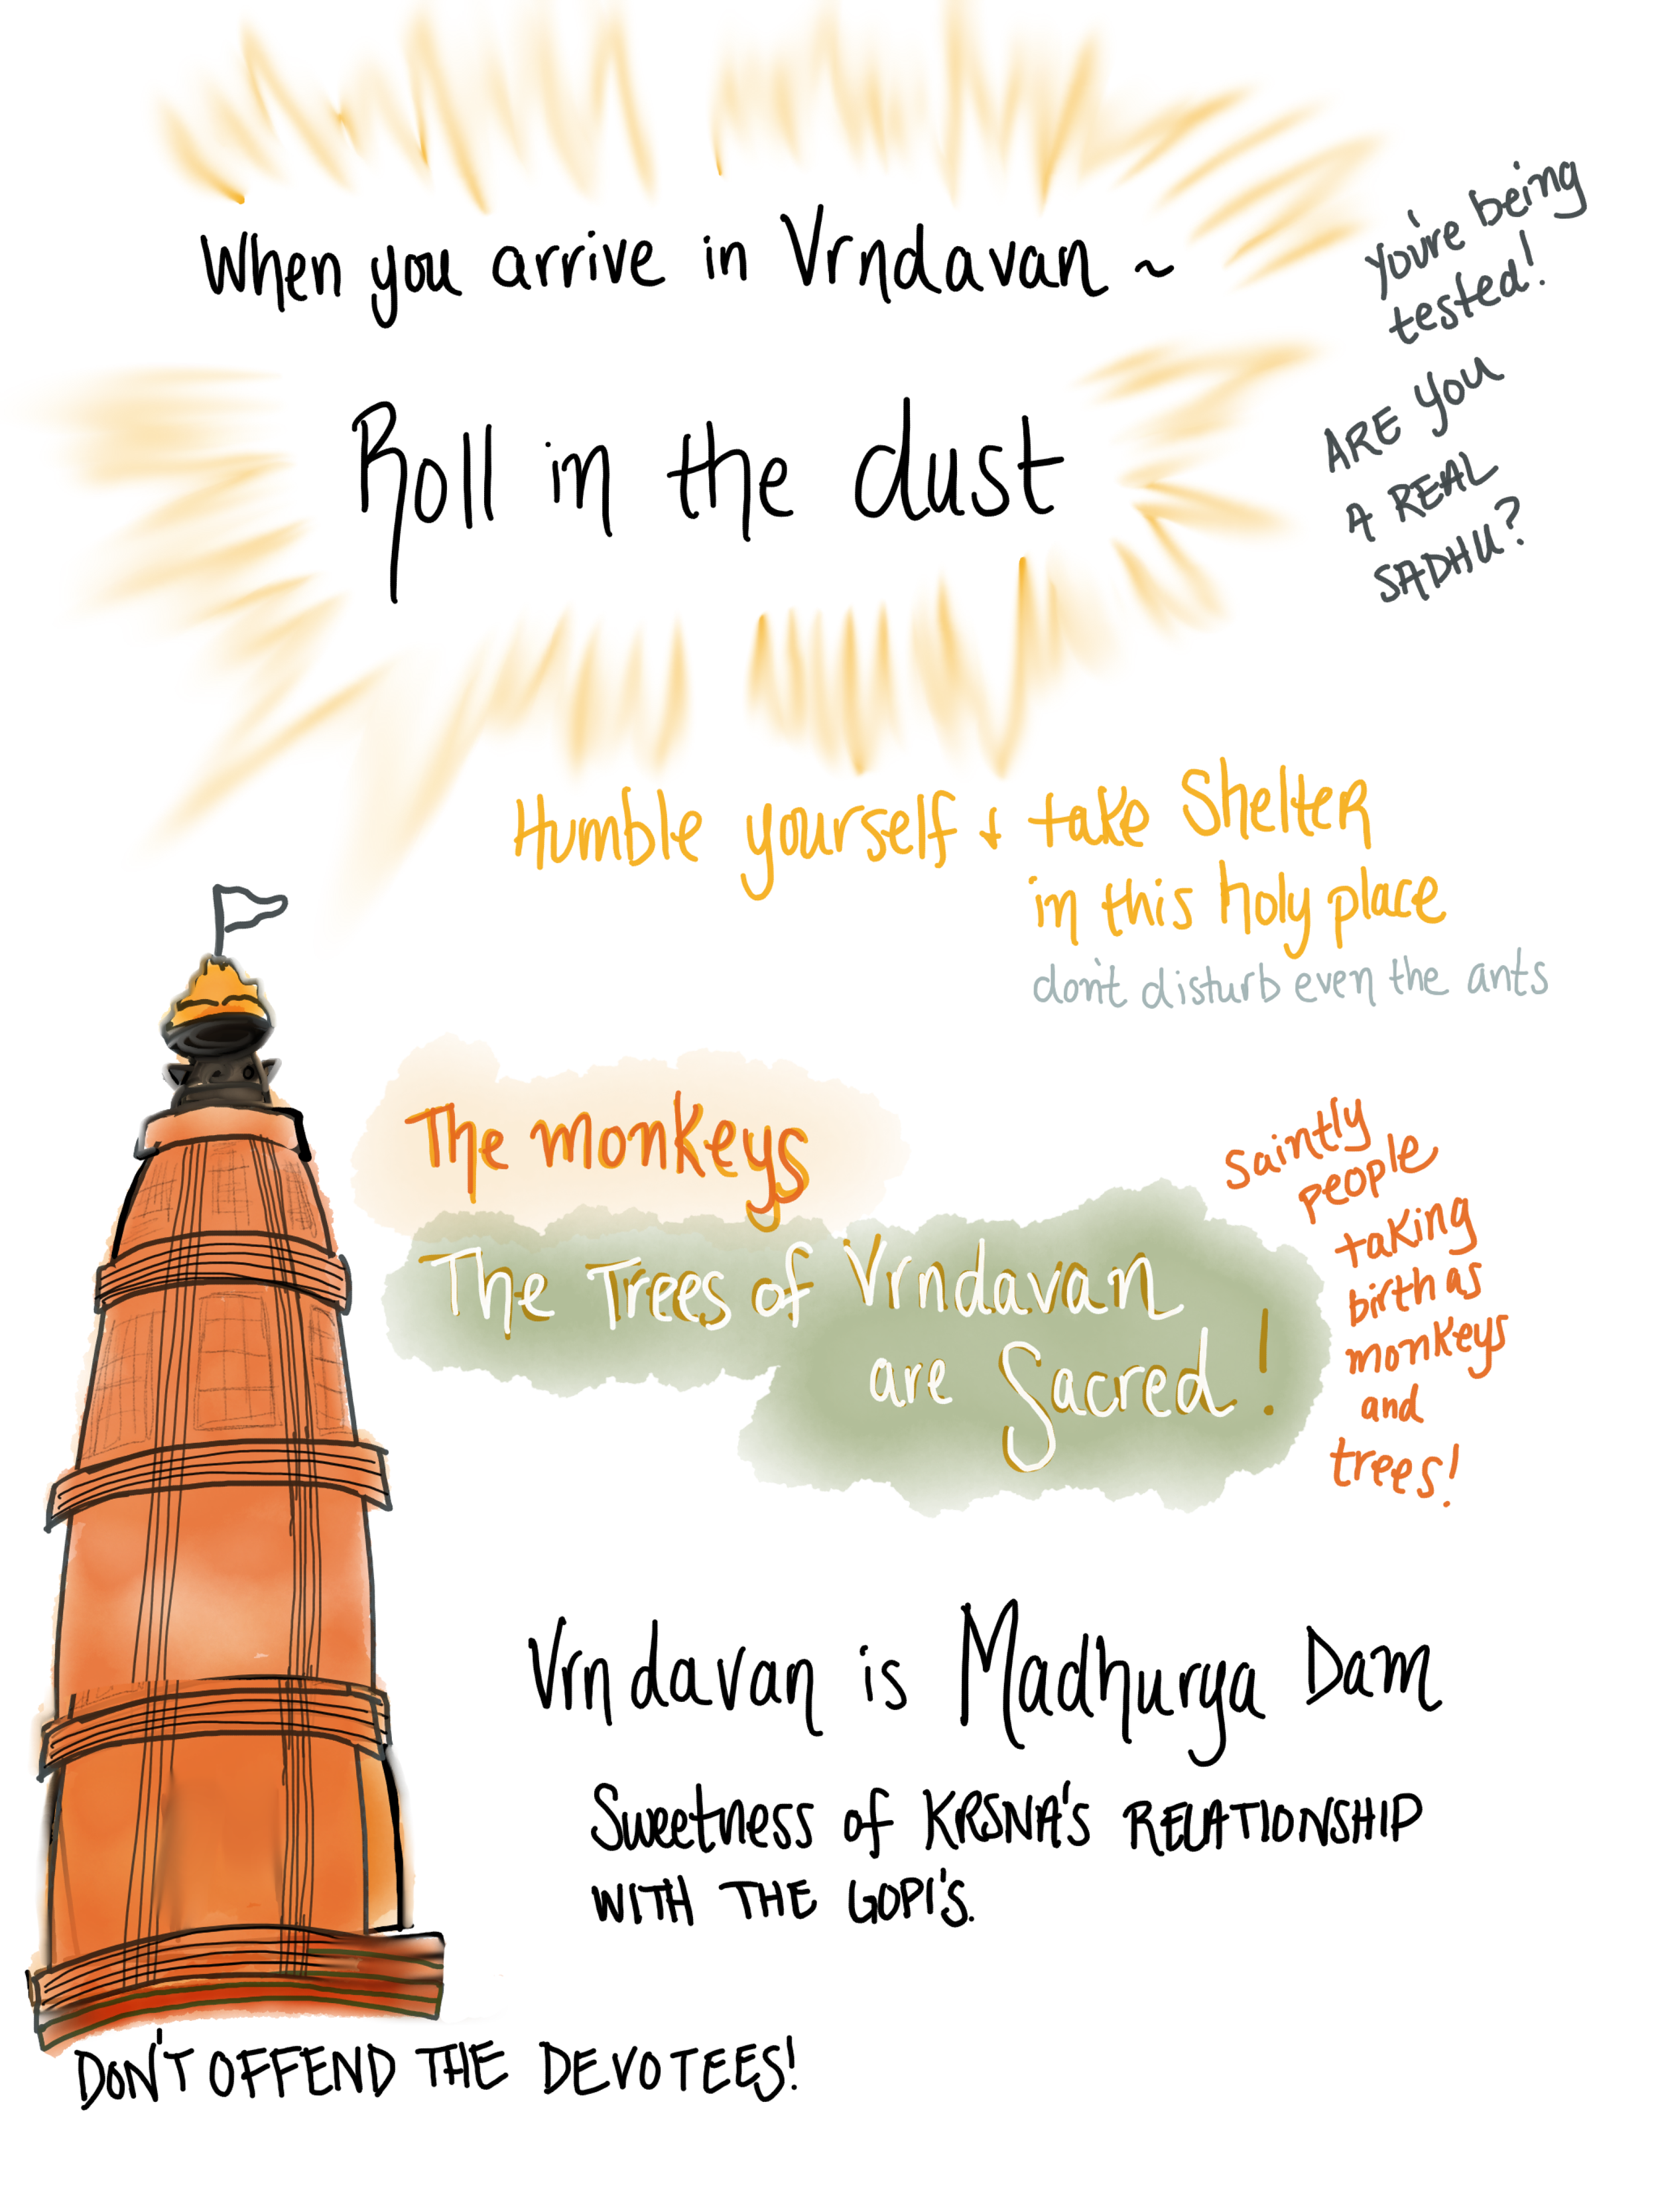 When you arrive in Vrndavan ~
Roll in the dust
you're being
tested!
ARE YOU
A REAL
SADHU?
Humble yourself + take Shelter
in this holy place
don't disturb even the ants
The monkeys
The Trees of Vrndavan
are Sacred!
Saintly
people
taking
birth as
monkeys
and
trees!
Vrndavan is Madhurya Dam
Sweetness of KRSNA'S RELATIONSHIP
WITH THE GOPI'S.
DON'T OFFEND THE DEVOTEES!